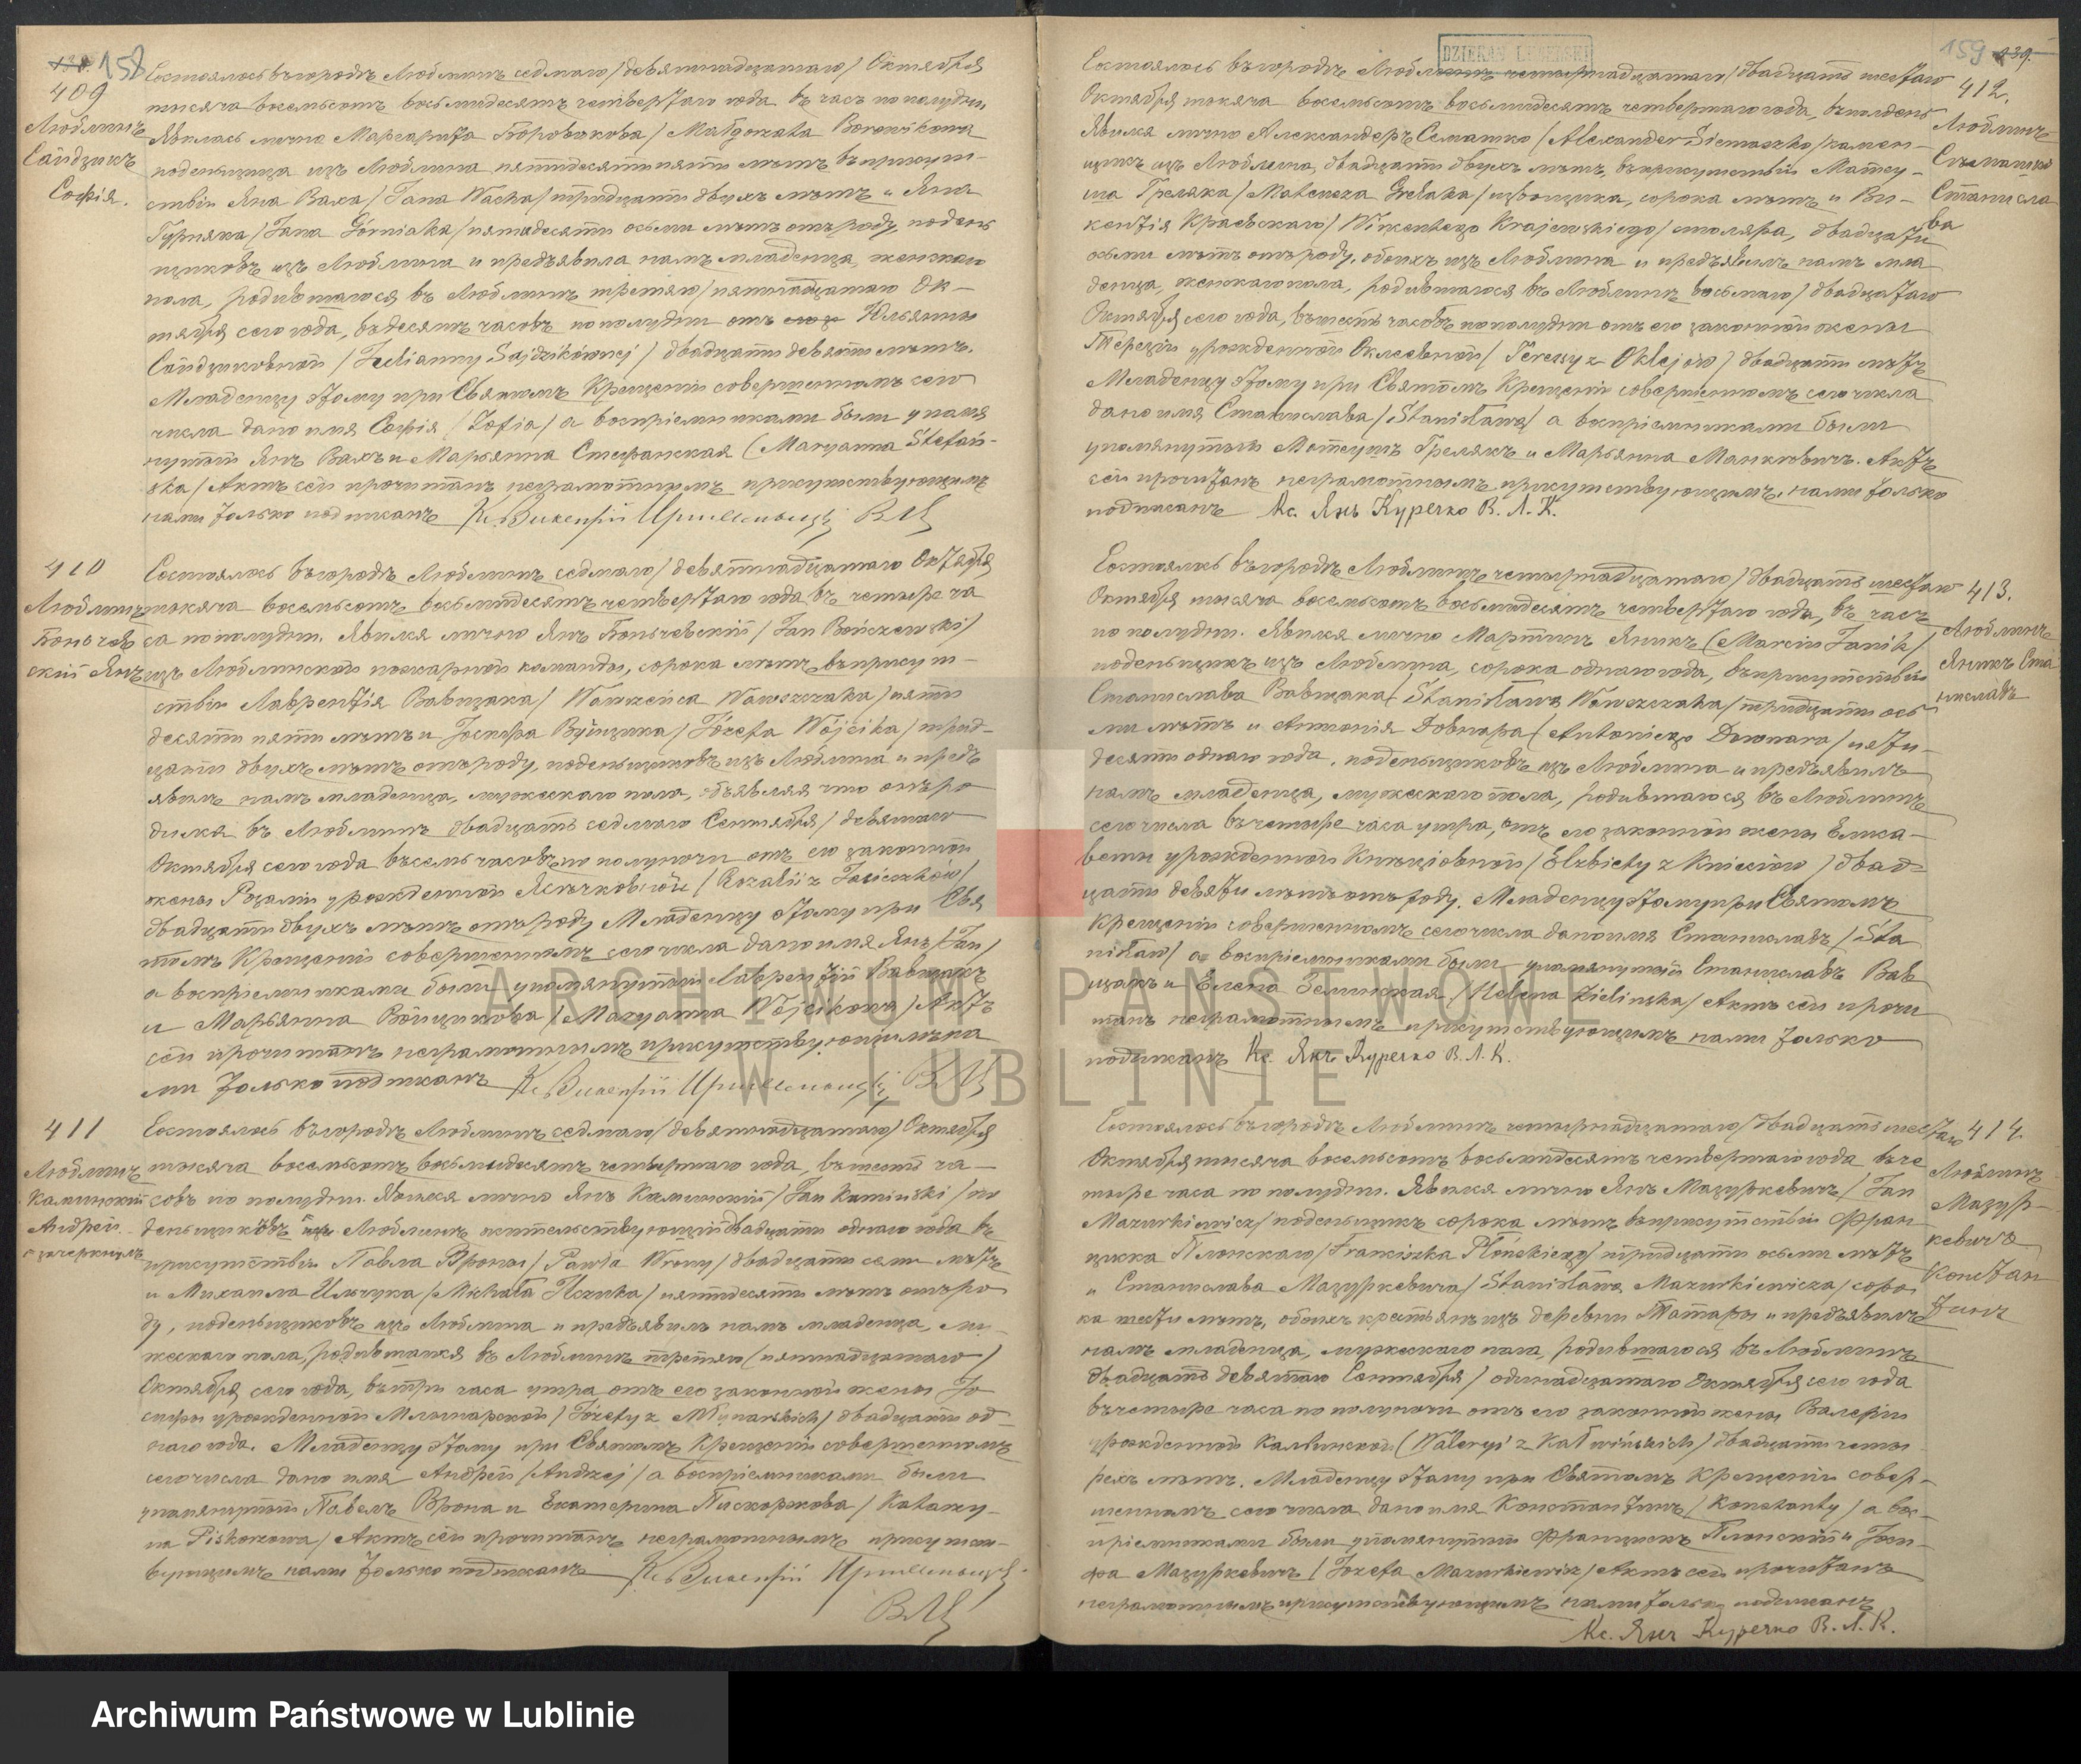 158
409
Люблинъ
Сайдзикъ
Софія.
Состоялось въ городѣ Люблинѣ седмаго/девятнадцатаго/ Октября
тысяча восемьсотъ восьмидесятъ четвертаго года въ часъ по полудни
Явилась лично Маргарита Боровикова/ Małgorzata Borowikowa
поденьщица изъ Люблина пятидесяти пяти лѣтъ въ присут-
ствіи Яна Ваха/ Jana Wacha/ тридцати двухъ лѣтъ и Яна
Гурняка/ Jana Górniaka/ пятидесяти осьми лѣтъ отъ роду, подень
щиковъ изъ Люблина и предъявила намъ младенца, женскаго
пола, родившагося въ Люблинѣ третяго/пятнадцатаго Ок-
тября сего года, въ десять часовъ по полудни отъ Юльянны
Сайдзиковной / Julianny Sajdzikównej/ двадцати девяти лѣтъ.
Младенцу этому при Святомъ Крещеніи совершенномъ сего
числа дано имя Софія / Zofia/ а воспріемниками были упомя
нутый Янъ Вахъ и Марьянна Стефанская (Maryanna Stefań-
ska/ Актъ сей прочитанъ неграмотнымъ присутствующимъ
нами только подписанъ Кс. Викентій В Л К
410
Люблинъ
Боньчев
скій Янъ
Состоялось въ городѣ Люблинѣ седмаго/ девятнадцатаго Октября
тысяча восемьсотъ восьмидесятъ четвертаго года въ четыре ча
са по полудни. Явился лично Янъ Боньчевскій/ Jan Bończewski/
изъ Люблинской пожарной команды, сорока лѣтъ въ присут-
ствіи Лаврентія Вавщака/ Wawrzeńca Wawszczaka/ пяти
десяти пяти лѣтъ и Іосифа Вуйцика/ Józefa Wójcika/ трид-
цати двухъ лѣтъ отъ роду, поденьщиковъ изъ Люблина и предъ
явилъ намъ младенца, мужескаго пола, объявляя что онъ ро
дился въ Люблинѣ двадцать седмаго Сентября/ девятаго
Октября сего года въ семь часовъ по полуночи отъ его законной
жены Розаліи урожденной Ясѣчковной/ Rozalii z Jasieczków/
двадцати двухъ лѣтъ отъ роду Младенцу этому при Свя
томъ Крещеніи совершенномъ сего числа дано имя Янъ/ Jan/
а воспріемниками были упомянутый Лаврентій Вавщакъ
и Марьянна Войцикова/ Maryanna Wójcikowa/ Актъ
сей прочитанъ неграмотнымъ присутствующимъ на
ми только подписанъ Кс. Викентій В Л К
411
Люблинъ
Каминскій
Андрей.
Состоялось въ городѣ Люблинѣ седмаго/девятнадцатаго/ Октября
тысяча восемьсотъ восьмидесятъ четвертаго года, въ шесть ча-
совъ по полудни. Явился лично Янъ Каминскій/ Jan Kamiński/ по
деньщиковъ изъ Люблинѣ жительствующій двадцати одного года въ
присутствіи Павла Вроны/ Pawła Wrony/ двадцати семи лѣтъ
и Михаила Ильчука/ Michała Ilczuka/ пятидесяти лѣтъ отъ ро
ду, поденьщиковъ изъ Люблина и предъявилъ намъ младенца, му-
жескаго пола, родившагося въ Люблинѣ третяго/пятнадцатаго/
Октября сего года, въ три часа утра отъ его законной жены Іо
сифы урожденной Млынарской/ Józefy z Młynarskich/ двадцати од
ного года. Младенцу этому при Святомъ Крещеніи совершенномъ
сего числа дано имя Андрей/ Andrzej/ а воспріемниками были
упомянутый Павелъ Врона и Екатерина Пискоржова/ Katarzy-
na Piskorzowa/ Актъ сей прочитанъ неграмотнымъ присутст-
вующимъ нами только подписанъ Кс. Викентій
В Л К
DZIEKAN LUBELSKI
159
412.
Люблинъ
Станисла
ва
Состоялось въ городѣ Люблинѣ четырнадцатаго/двадцать шестаго
Октября тысяча восемьсотъ восьмидесятъ четвертаго года, въ полдень
Явился лично Александеръ Семашко/ Alexander Siemaszko/ камен-
щикъ изъ Люблина, двадцати двухъ лѣтъ, въ присутствіи Матеу-
ша Греляка/ Mateusza Grelaka/ извощика, сорока лѣтъ и Ви-
кентія Краевскаго/ Winkentego Krajewskiego/ столяра, двадцати
осьми лѣтъ отъ роду, обоихъ изъ Люблина и предъявилъ намъ мла
денца, женскаго пола, родившагося въ Люблинѣ восьмаго/ двадцатаго
Октября сего года, въ шесть часовъ по полудни отъ его законной жены
Терезіи урожденной Оклеевной/ Teresy z Oklejów/ двадцати лѣтъ
Младенцу этому при Святомъ Крещеніи совершенномъ сего числа
дано имя Станислава/ Stanisława/ а воспріемниками были
упомянутый Матеушъ Грелякъ и Марьянна Манковичъ. Актъ
сей прочитанъ неграмотнымъ присутствующимъ, нами только
подписанъ Кс. Янъ Куречко В. Л. К.
413.
Люблинъ
Яникъ Ста
ниславъ
Состоялось въ городѣ Люблинѣ четырнадцатаго/ двадцать шестаго
Октября тысяча восемьсотъ восьмидесятъ четвертаго года, въ часъ
по полудни. Явился лично Мартинъ Яникъ (Marcin Janik/
поденьщикъ изъ Люблина, сорока одного года, въ присутствіи
Станислава Вавщака/ Stanisława Wawszczaka/ тридцати ось
ми лѣтъ и Антонія Довнара/ Antoniego Downara/ пяти-
десяти одного года, поденьщиковъ изъ Люблина и предъявилъ
намъ младенца, мужескаго пола, родившагося въ Люблинѣ
сего числа въ четыре часа утра, отъ его законной жены Елиса-
веты урожденной Кнецювной/ Elzbiety z Knieciów/ двад-
цати девяти лѣтъ отъ роду. Младенцу этому при Святомъ
Крещеніи совершенномъ сего числа дано имя Станиславъ/ Sta
nisław/ а воспріемниками были упомянутый Станиславъ Вав
щакъ и Елена Зелинская/ Helena Zielinska/ Актъ сей прочи
танъ неграмотнымъ присутствующимъ нами только
подписанъ Кс. Янъ Куречко В. Л. К.
414.
Люблинъ
Мазур-
кевичъ
Констан
тинъ
Состоялось въ городѣ Люблинѣ четырнадцатаго/ двадцать шестаго
Октября тысяча восемьсотъ восьмидесятъ четвертаго года въ че
тыре часа по полудни. Явился лично Янъ Мазуркевичъ/ Jan
Mazurkiewicz/ поденьщикъ сорока лѣтъ въ присутствіи Фран
циска Плонскаго/ Franciszka Płońskiego/ тридцати осьми лѣтъ
и Станислава Мазуркевича/ Stanisława Mazurkiewicza/ соро
ка шести лѣтъ, обоихъ крестьянъ изъ деревни Татары и предъявилъ
намъ младенца, мужескаго пола, родившагося въ Люблинѣ
двадцать девятаго Сентября/ одинадцатаго Октября сего года
въ четыре часа по полуночи отъ его законной жены Валеріи
урожденной Калвинской (Waleryi z Kałwińskich/ двадцати четы-
рехъ лѣтъ. Младенцу этому при Святомъ Крещеніи совер-
шенномъ сего числа дано имя Константинъ/ Konstanty/ а вос-
пріемниками были упомянутый Францискъ Плонскій и Іози-
фа Мазуркевичъ/ Jozefa Mazurkiewicz/ Актъ сей прочитанъ
неграмотнымъ присутствующимъ нами только подписанъ
Кс. Янъ Куречко В. Л. К.
ARCHIWUM PAŃSTWOWE
W LUBLINIE
Archiwum Państwowe w Lublinie